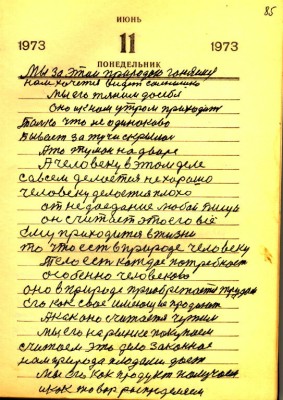 85
ИЮНЬ
1973 11 1973
ПОНЕДЕЛЬНИК
Мы за этим природою гонимы
нам хочется видеть солнышко
Мы его тянем до себя
Оно к нам утром приходит
Только что не одиноково
бывает за тучи скрывши
А то туман на дворе
А человеку в этом деле
совсем делается нехорошо
человеку делается плохо
от недоедание любой
он считает это его всё
ему приходится в жизни
то что есть в природе человеку
Тело ест каждое потребляет
особенно человеково
оно в природе приобретается трудом
его как своё имеющее продукт
А как оно считается чужим
мы его на рынке покупаем
считаем это дело законное
нам природа плодами дает
Мы его как продукт получаем
и как товар